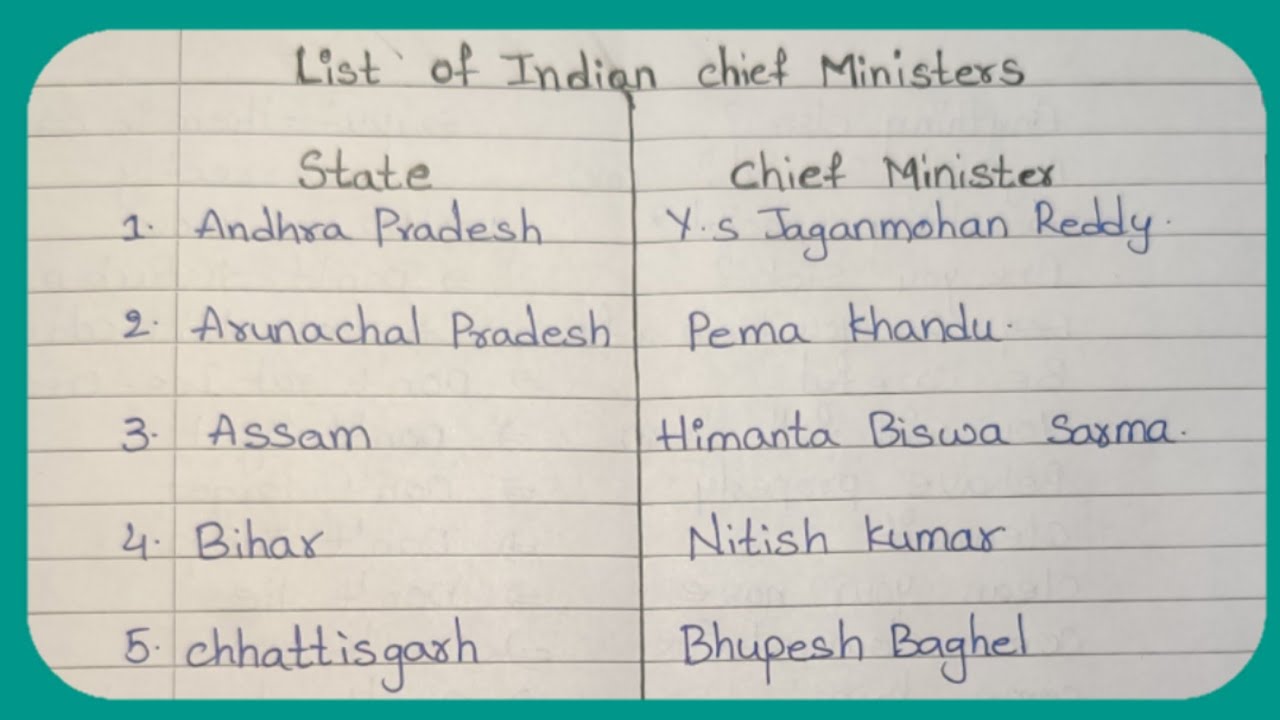 List of Indian chief Ministers
State Chief Minister
1. Andhra Pradesh Y.s Jaganmohan Reddy.
2. Arunachal Pradesh Pema Khandu.
3. Assam Himanta Biswa Sarma.
4. Bihar Nitish Kumar
5. chhattisgarh Bhupesh Baghel